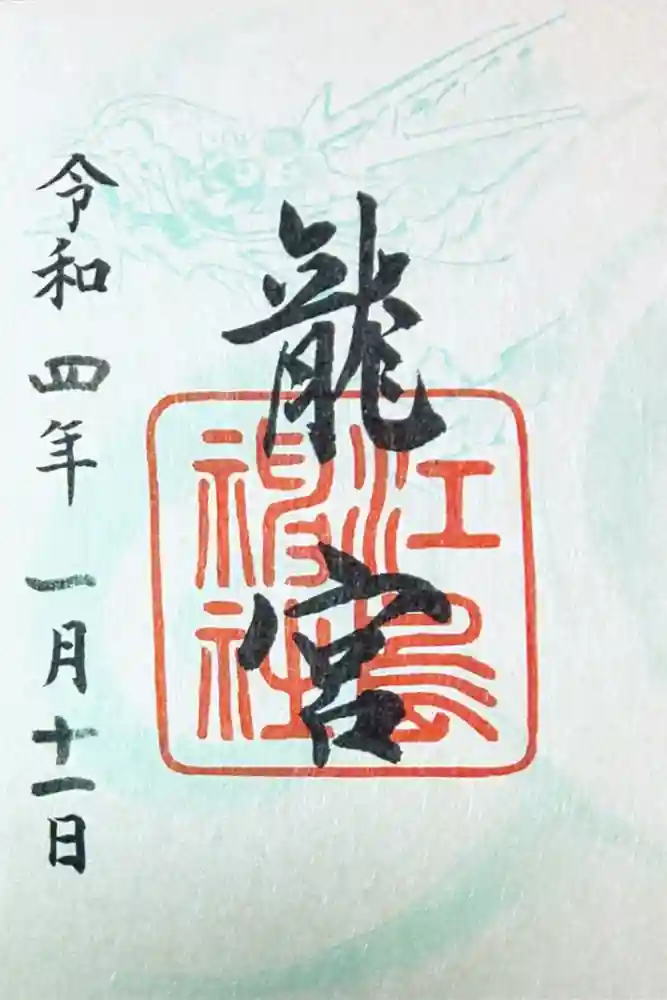 龍宮
江島
神社
令和四年一月十一日